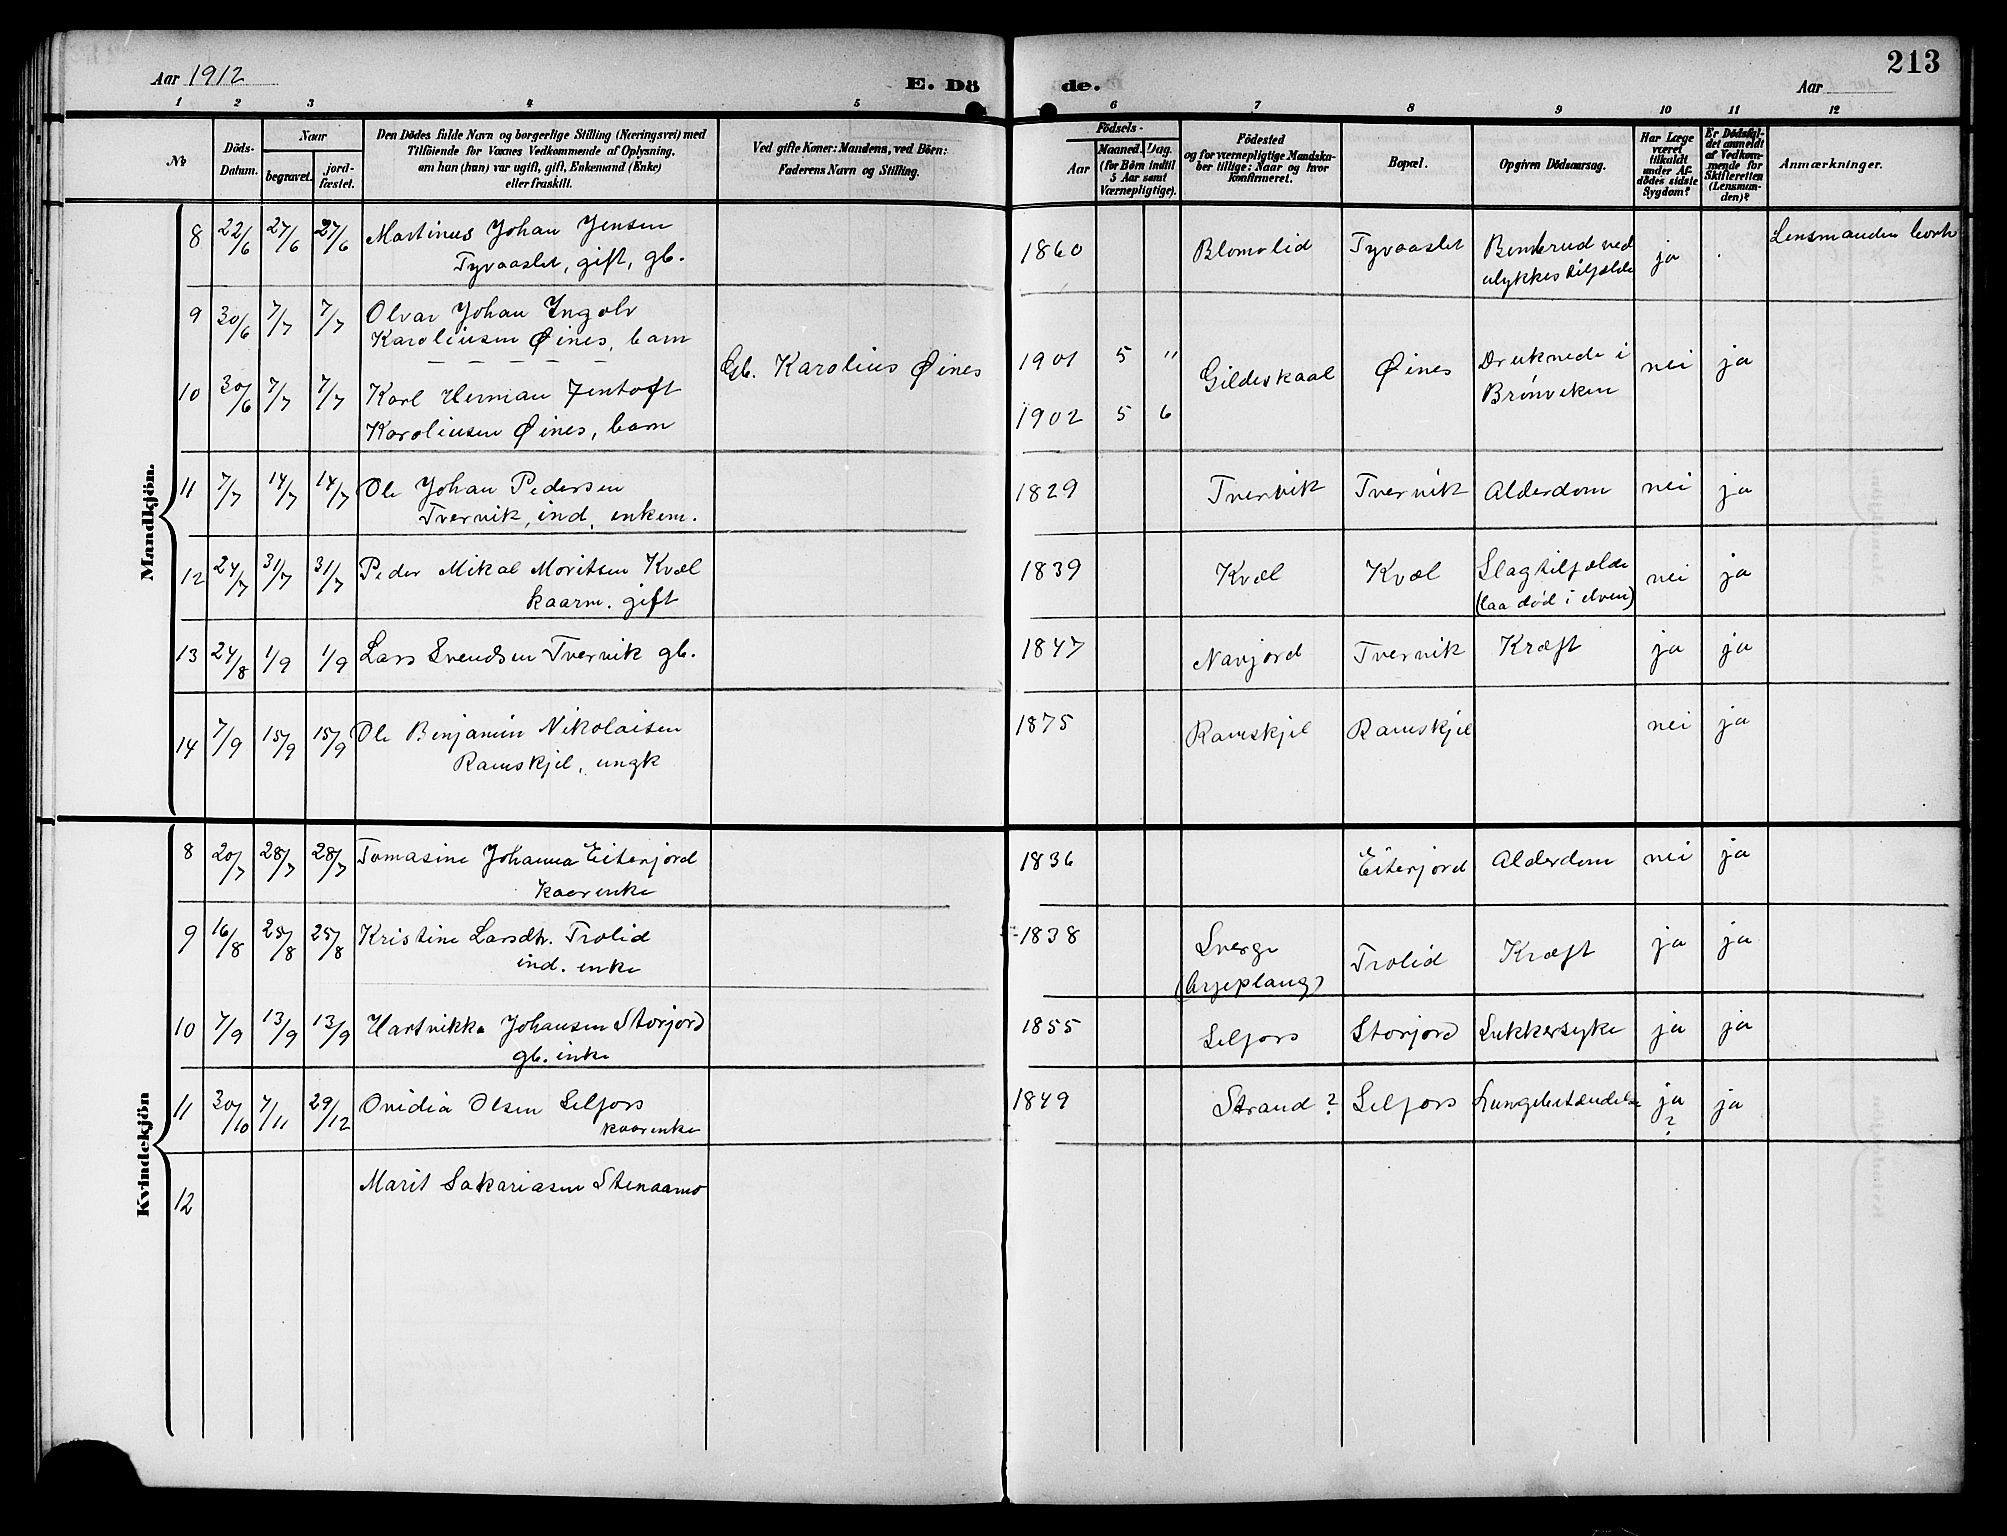 Aar 1912
E. Dö
de.
Aar
213
1 2 3 4 5 6 7 8 9 10 11 12
No
Döds-
Datum.
Naar
begravet.
jord-
fæstet.
Den Dödes fulde Navn og borgerlige Stilling (Næringsvei) med
Tilföiende for Voxnes Vedkommende af Oplysning,
om han (hun) var ugift, gift, Enkemand (Enke)
eller fraskilt.
Ved gifte Koner: Mandens, ved Börn:
Faderens Navn og Stilling.
Födsels-
Aar
Maaned. Dag.
(for Börn indtil
5 Aar samt
Værnepligtige).
Födested
og for værnepligtige Mandska-
ber tillige: Naar og hvor
konfirmeret.
Bopæl.
Opgiven Dödsaarsag.
Har Læge
været
tilkaldt
under Af-
dödes sidste
Sygdom?
Er Dödsfal-
det anmeldt
af Vedkom-
mende for
Skifteretten
(Lensman-
den)?
Anmærkninger.
Mandkjön.
8 22/6 27/6 27/6 Martinus Johan Jensen
Tyvaaslet, gift, gb.
1860 Blomolid Tyvaaslet Benbrud ved
ulykkestilfælde
ja
Lensmanden
9 30/6 7/7 7/7 Olvar Johan Ingolv
Karoliusen Øines, barn
10 30/6 7/7 7/7 Karl Herman Jentoft
Karoliusen Øines, barn
Gb. Karolius Øines
1901 5 "
1902 5 6
Gildeskaal Øines Druknede i
Brønviken
nei ja
11 7/7 14/7 14/7 Ole Johan Pedersen
Tvervik, ind, enkem.
1829 Tvervik Tvervik Alderdom nei ja
12 24/7 31/7 31/7 Peder Mikal Moritsen Kvæl
kaarm. gift
1839 Kvæl Kvæl Slagtilfælde
(laa død i elven)
nei ja
13 24/8 1/9 1/9 Lars Svendsen Tvervik gb.
1847 Navjord Tvervik Kræft ja ja
14 7/9 15/9 15/9 Ole Benjamin Nikolaisen
Ramskjel, ungk
1875 Ramskjel Ramskjel nei ja
Kvindekjön
8 20/7 28/7 28/7 Tomasine Johanna Eiterjord
kaarenke
1836 Eiterjord Alderdom nei ja
9 16/8 25/8 25/8 Kristine Larsdtr. Trolid
ind. enke
1838 Sverge
(Arjeplaug)
Trolid Kræft ja ja
10 7/9 13/9 13/9 Hartvikka Johansen Storjord
gb. enke
1855 Selfors Storjord Sukkersyke ja ja
11 30/10 7/11 29/12 Ovidia Olsen Selfors
kaarenke
1849 Strand? Selfors Lungebetændelse ja
?
ja
12 Marit Sakariasen Stenaamo